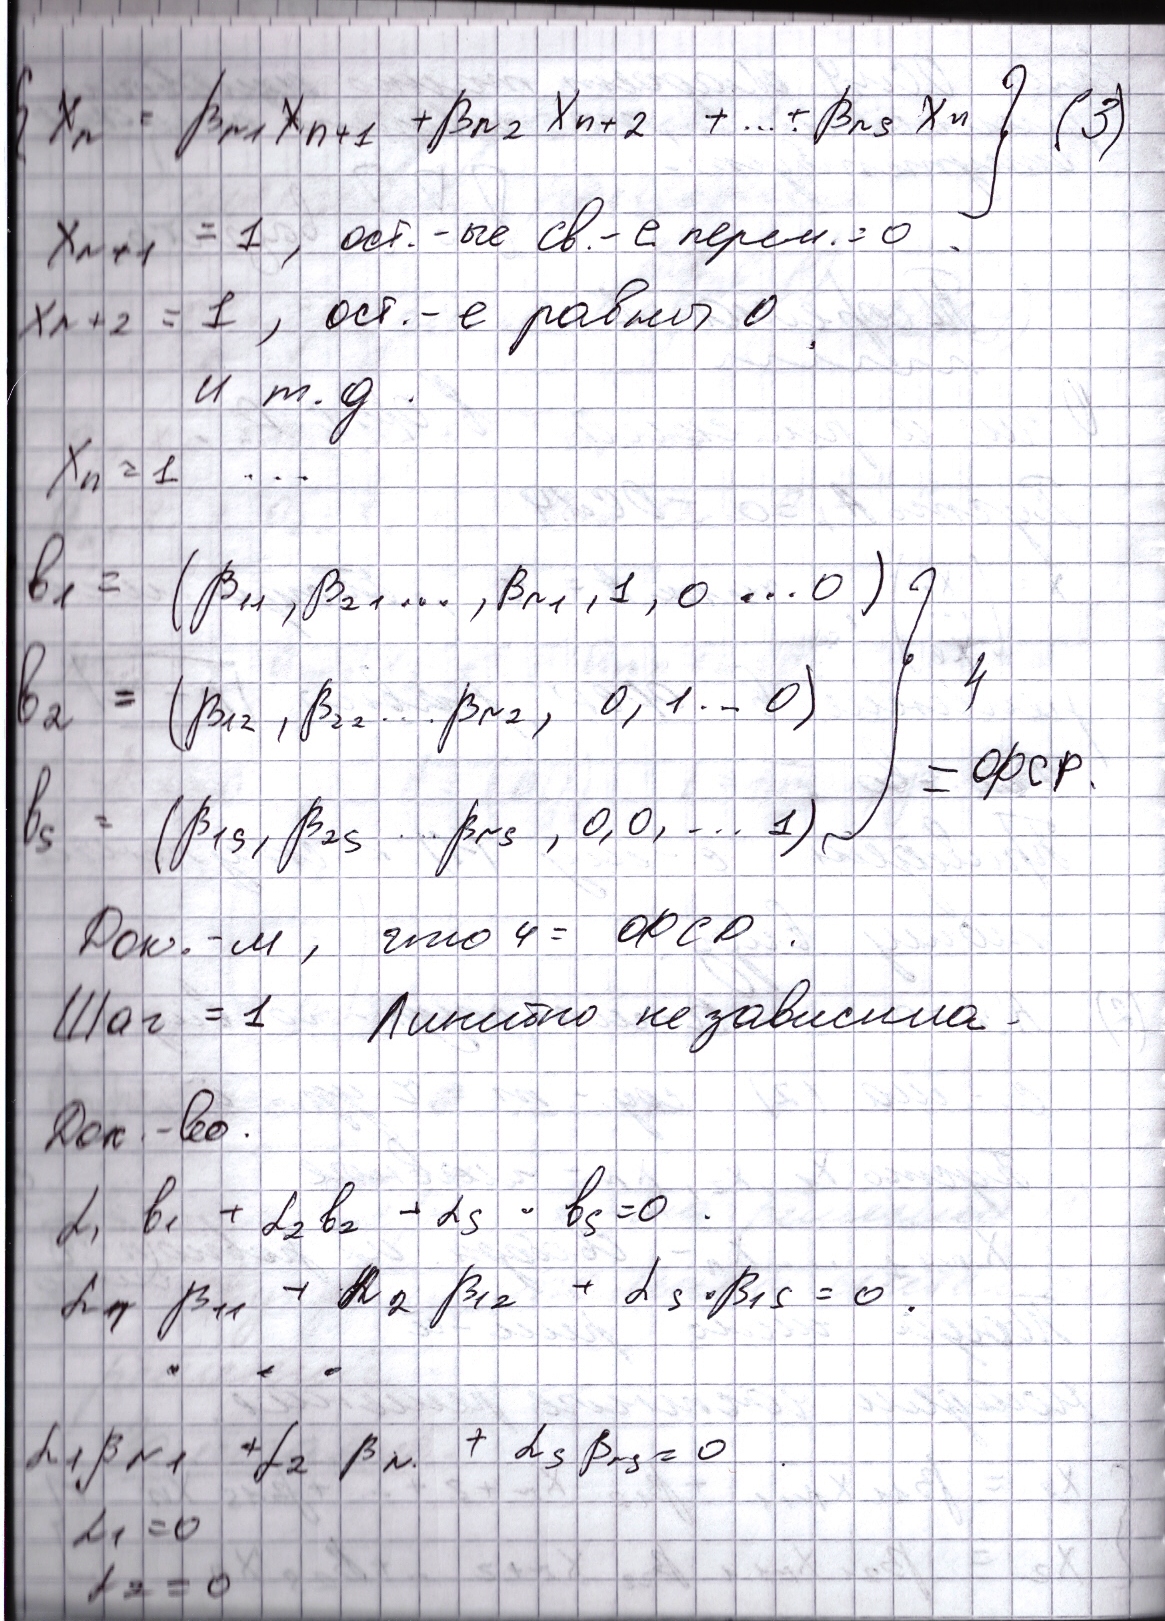 x_r = β_{r1} x_{n+1} + β_{r2} x_{n+2} + ... + β_{rs} x_n } (3)
x_{r+1} = 1, ост.-ые св.-е перем. = 0.
x_{r+2} = 1, ост.-е равны 0.
и т.д.
x_n = 1 ...
b_1 = (β_{11}, β_{21} ..., β_{r1}, 1, 0 ... 0)
b_2 = (β_{12}, β_{22} ... β_{r2}, 0, 1 ... 0) } 4
= ФСР.
b_s = (β_{1s}, β_{2s} ... β_{rs}, 0, 0, ... 1)
Док.-м, что 4 = ФСР.
Шаг = 1 Линейно независима.
Док.-во.
α_1 b_1 + α_2 b_2 + α_s · b_s = 0.
α_1 β_{11} + α_2 β_{12} + α_s · β_{1s} = 0.
. . .
α_1 β_{r1} + α_2 β_r. + α_s β_{rs} = 0.
α_1 = 0
α_2 = 0